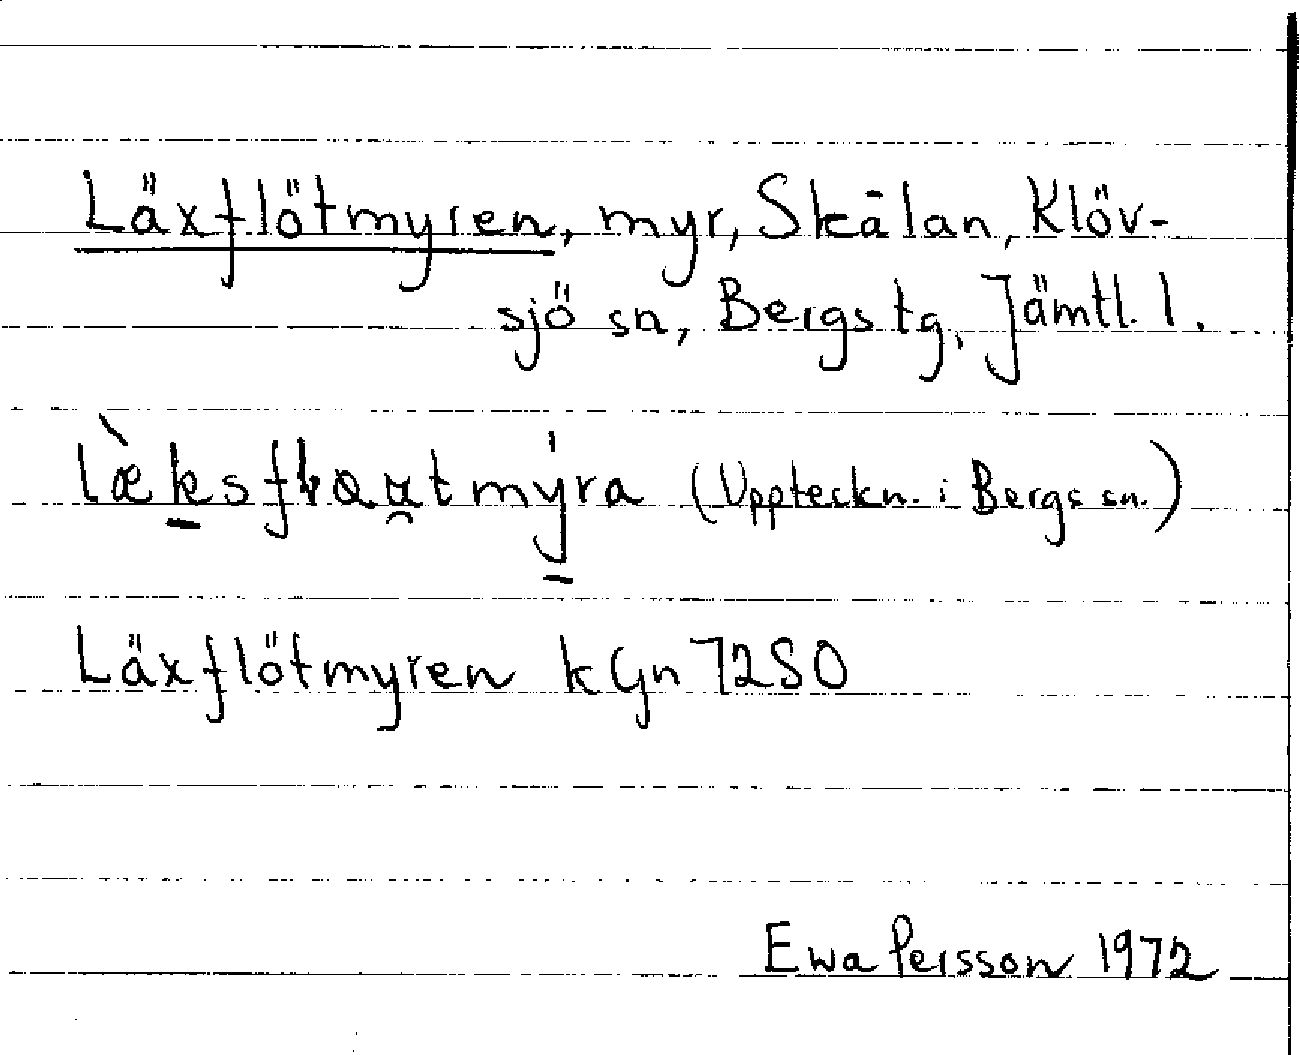 Läxflötmyren, myr, Skålan, Klöv-
sjö sn, Bergs tg, Jämtl. l.
læ̀ksflɑu̯tmýra (Uppteckn. i Bergs sn.)
Läxflötmyren kGn 72SO
Ewa Persson 1972